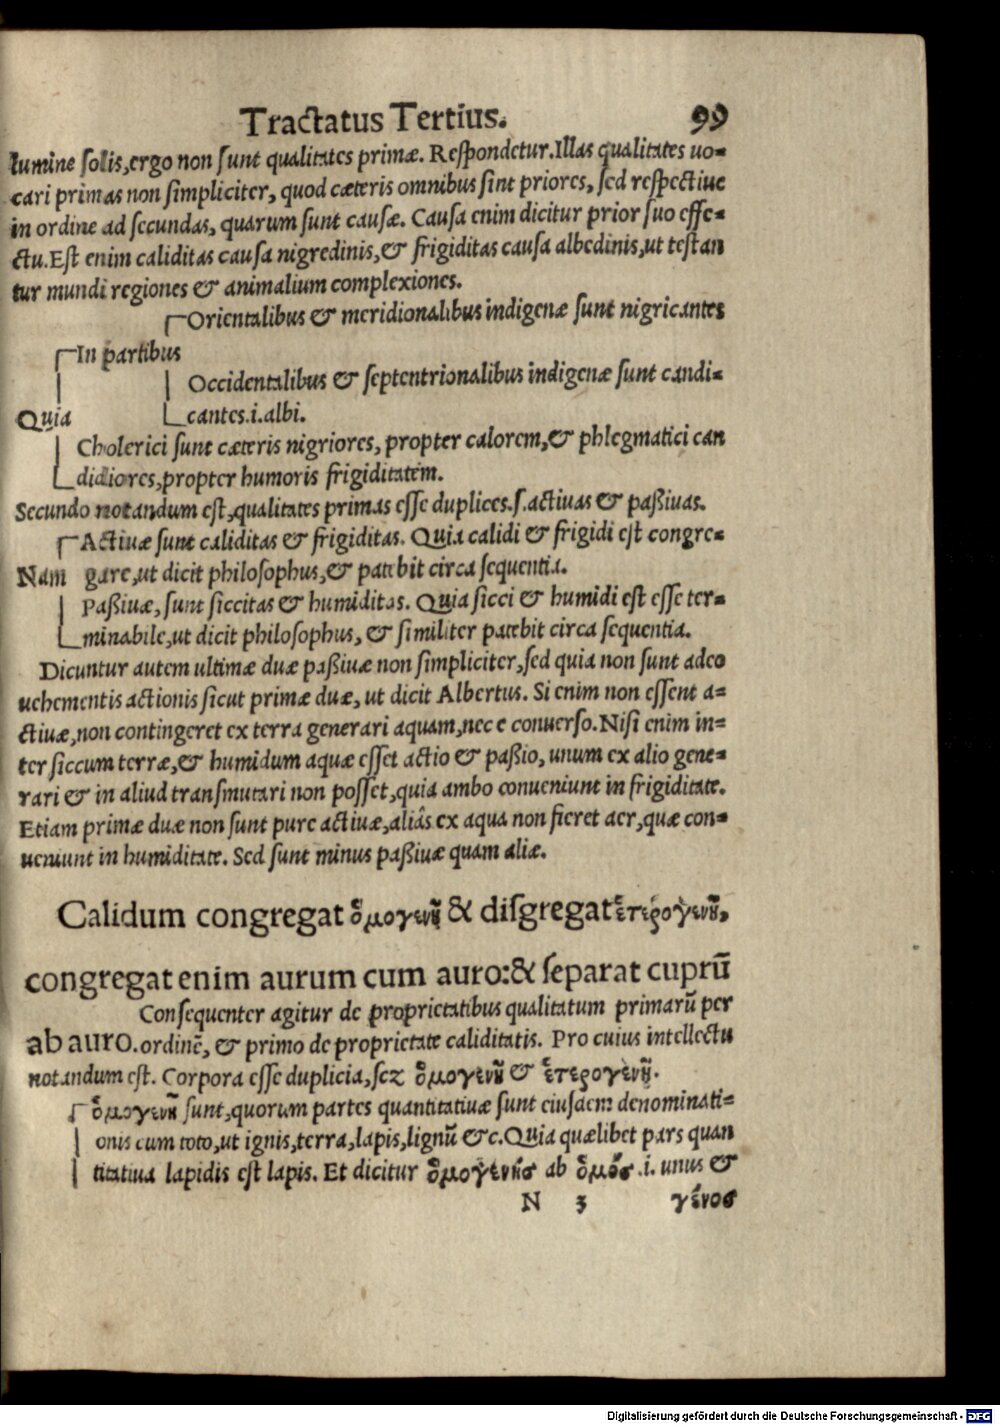 Tractatus Tertius. 99
lumine solis, ergo non sunt qualitates primæ. Respondetur. Illas qualitates uo=
cari primas non simpliciter, quod cæteris omnibus sint priores, sed respectiue
in ordine ad secundas, quarum sunt causæ. Causa enim dicitur prior suo effe=
ctu. Est enim caliditas causa nigredinis, & frigiditas causa albedinis, ut testan
tur mundi regiones & animalium complexiones.
Orientalibus & meridionalibus indigenæ sunt nigricantes
In partibus
Occidentalibus & septentrionalibus indigenæ sunt candi=
Quia cantes .i. albi.
Cholerici sunt cæteris nigriores, propter calorem, & phlegmatici can
didiores, propter humoris frigiditatem.
Secundo notandum est, qualitates primas esse duplices. s. actiuas & paßiuas.
Actiuæ sunt caliditas & frigiditas. Quia calidi & frigidi est congre=
Nam gare, ut dicit philosophus, & patebit circa sequentia.
Paßiuæ, sunt siccitas & humiditas. Quia sicci & humidi est esse ter=
minabile, ut dicit philosophus, & similiter patebit circa sequentia.
Dicuntur autem ultimæ duæ paßiuæ non simpliciter, sed quia non sunt adeo
uehementis actionis sicut primæ duæ, ut dicit Albertus. Si enim non essent a=
ctiuæ, non contingeret ex terra generari aquam, nec e conuerso. Nisi enim in=
ter siccum terræ, & humidum aquæ esset actio & paßio, unum ex alio gene=
rari & in aliud transmutari non posset, quia ambo conueniunt in frigiditate.
Etiam primæ duæ non sunt pure actiuæ, aliâs ex aqua non fieret aer, quæ con=
ueniunt in humiditate. Sed sunt minus paßiuæ quam aliæ.
Calidum congregat ὅμογενῆ & disgregat ἕτερόγενῆ,
congregat enim aurum cum auro: & separat cuprū
Consequenter agitur de proprietatibus qualitatum primarū per
ab auro. ordinē, & primo de proprietate caliditatis. Pro cuius intellectu
notandum est. Corpora esse duplicia, scz ὅμογενῆ & ἕτερογὲνῆ.
ὅμογενῆ sunt, quorum partes quantitatiuæ sunt eiusdem denominati=
onis cum toto, ut ignis, terra, lapis, lignū &c. Quia quælibet pars quan
titatiua lapidis est lapis. Et dicitur ὅμογένὴς ab ὅμὸς .i. unus &
N 3 γένος